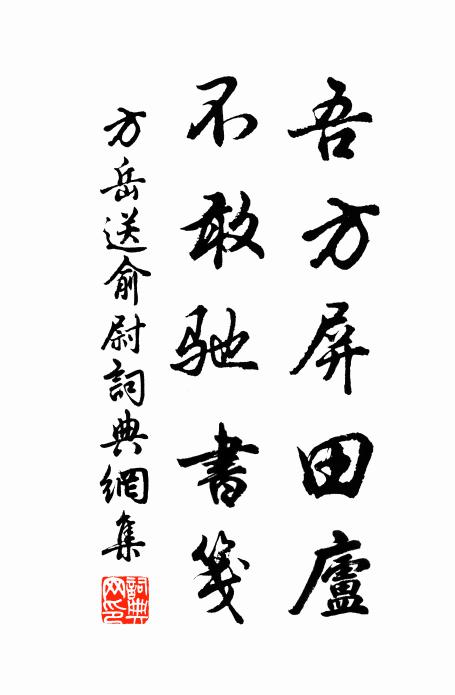 吾方屏田廬
不敢馳書箋
方岳送俞尉詞典網集
詞典網印